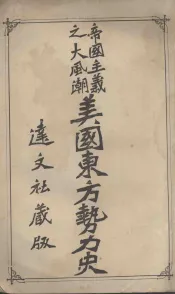 帝國主義
之大風潮
美國東方勢力史
達文社藏版